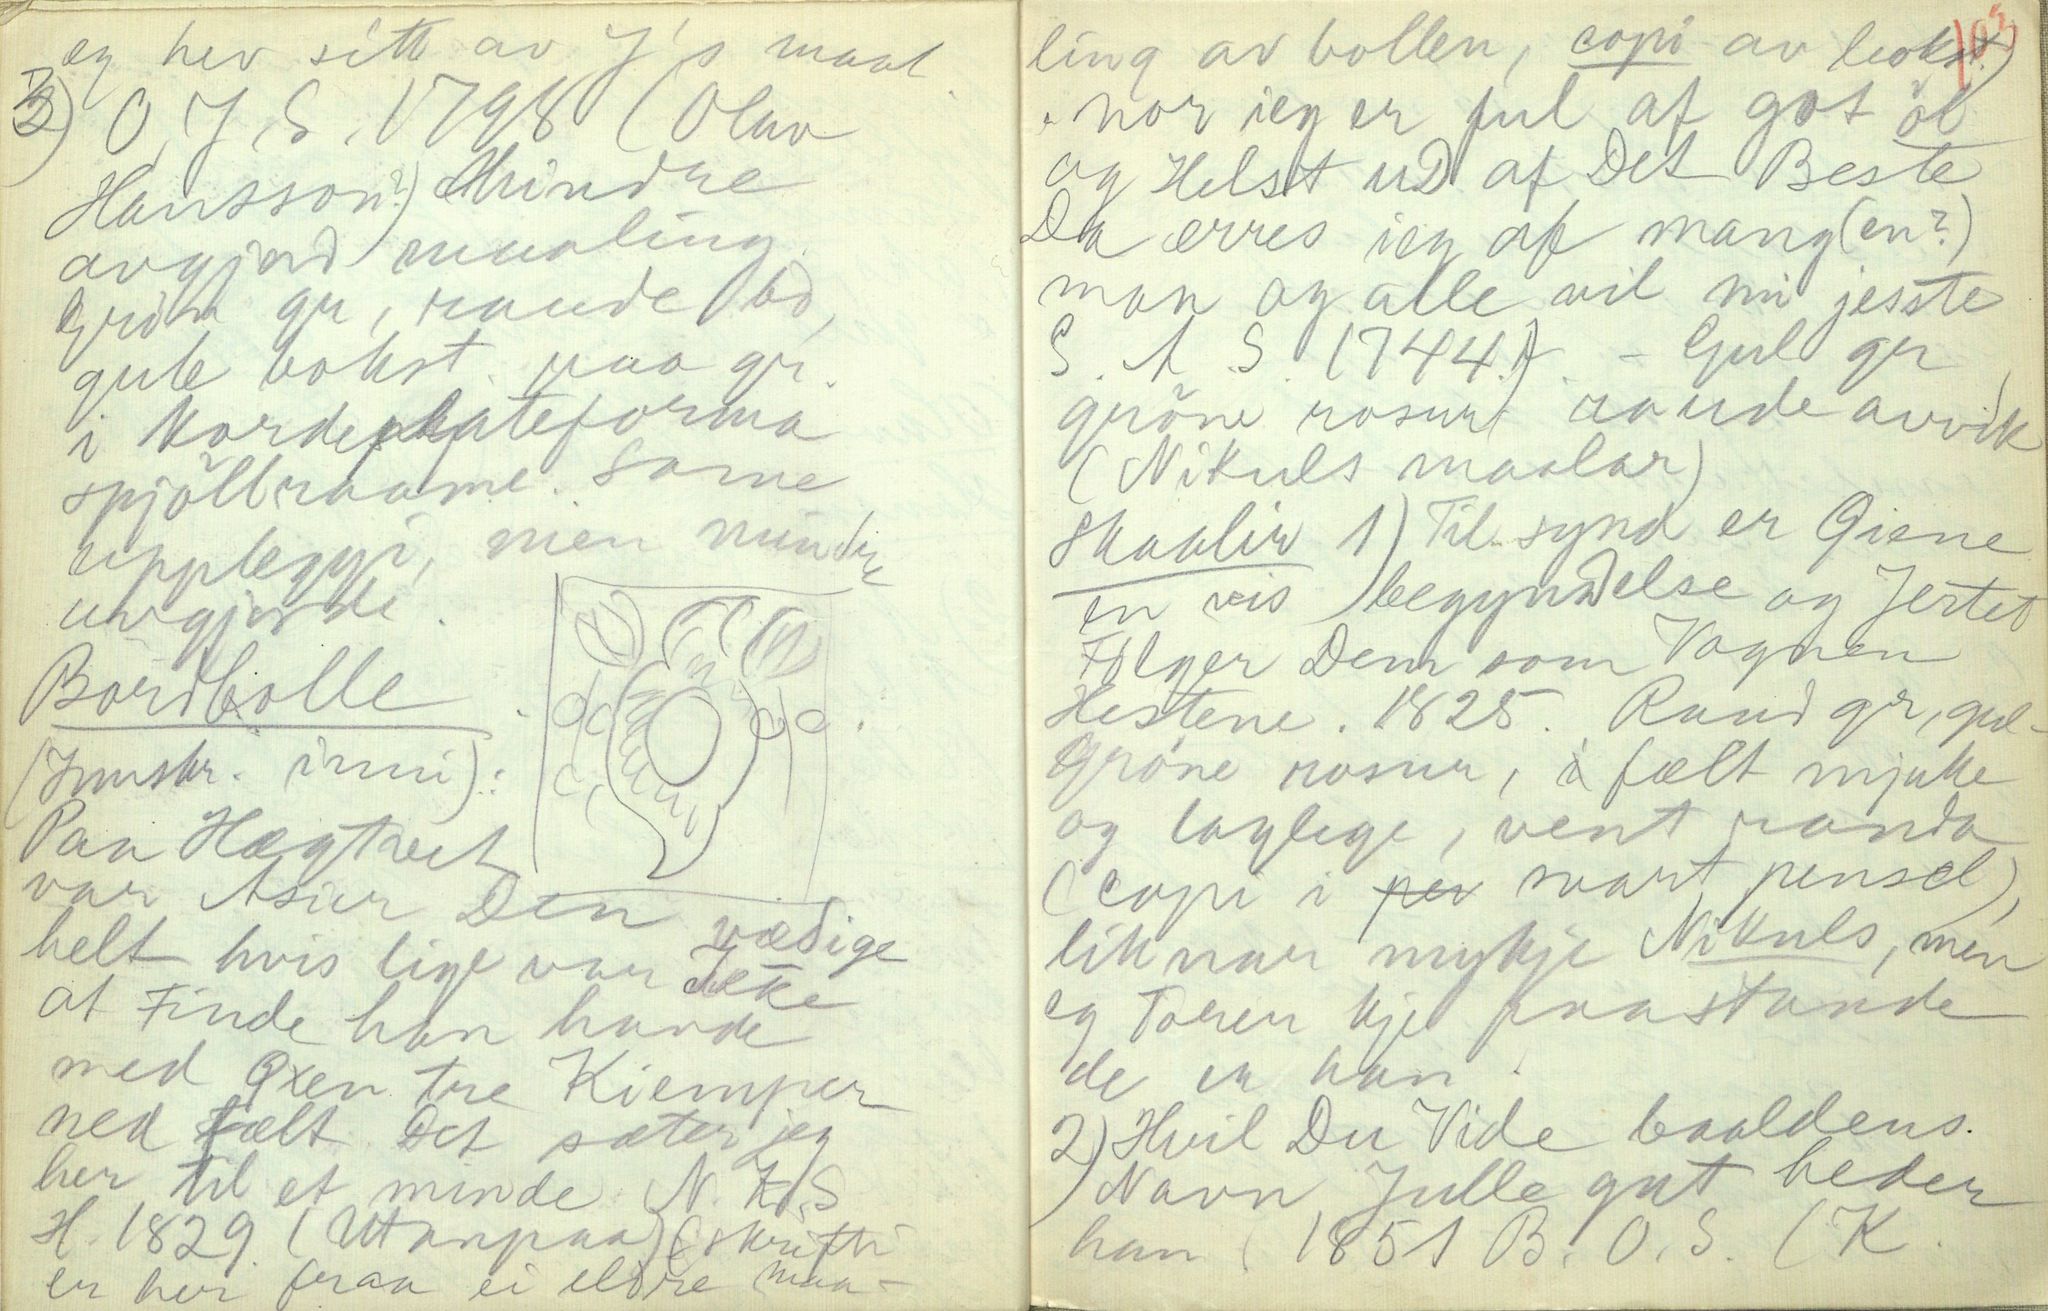 eg hev sitt av J's maal
3) O. J. S. 1798 (Olav
Hansson?) Mindre
avgjord maaling.
Grön gr, raude bd,
gule bokst. paa gr.
i
spjöllraame. Same
uppleggji, men mindre
uvgjorde.
Bordbolle
(Innskr. inni):
Paa Hægtveit
var Asiur Den vædige
helt hvis lige var Icke
at Finde han havde
med Øxen tre Kiemper
ned fælt Det sæter jeg
her til et minde N. K. S
H. 1829. (Utanpaa) (Skrifti
er her fraa ei eldre maa-
103
ling av bollen, copi av bokst.)
nor ieg er ful af got öl
og Helst uD af Det Beste
Da ærres ieg af mang (en?)
man og alle vil mi jesste
S. A. S. 1744.) - Gul gr
gröne rosur, raude avvik
(Nikuls maalar)
Skaalir 1) Til synd er Giene
en vis begyndelse og Jertet
Følger Dem som Vognen
Hestene. 1825. Raud gr, gul-
gröne rosur, i fælt mjuke
og laglege, vent randa
(copi i pen svart pensel),
liknar mykje Nikuls, men
eg Torer kje paastande
de er han.
2) Hvil Du Vide baaldens.
Navn Julle gut heder
han (1851 B. O. S. (K.